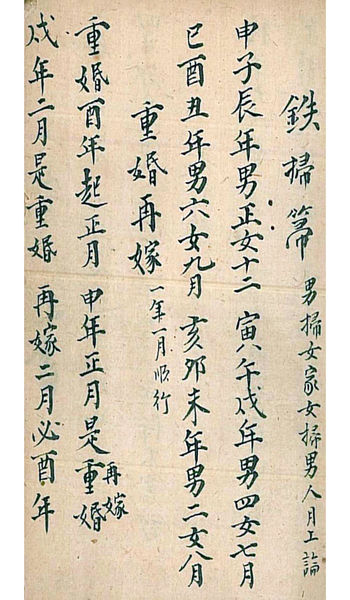 鉄掃箒 男掃女家女掃男人月上論
申子辰年男正女十二 寅八午戌年男四女七月
巳酉丑年男六女九月 亥卯未年男二女八月
重婚再嫁 一年一月順行
重婚酉年起正月 申年正月是重婚再嫁
戌年二月是重婚 再嫁二月必酉年